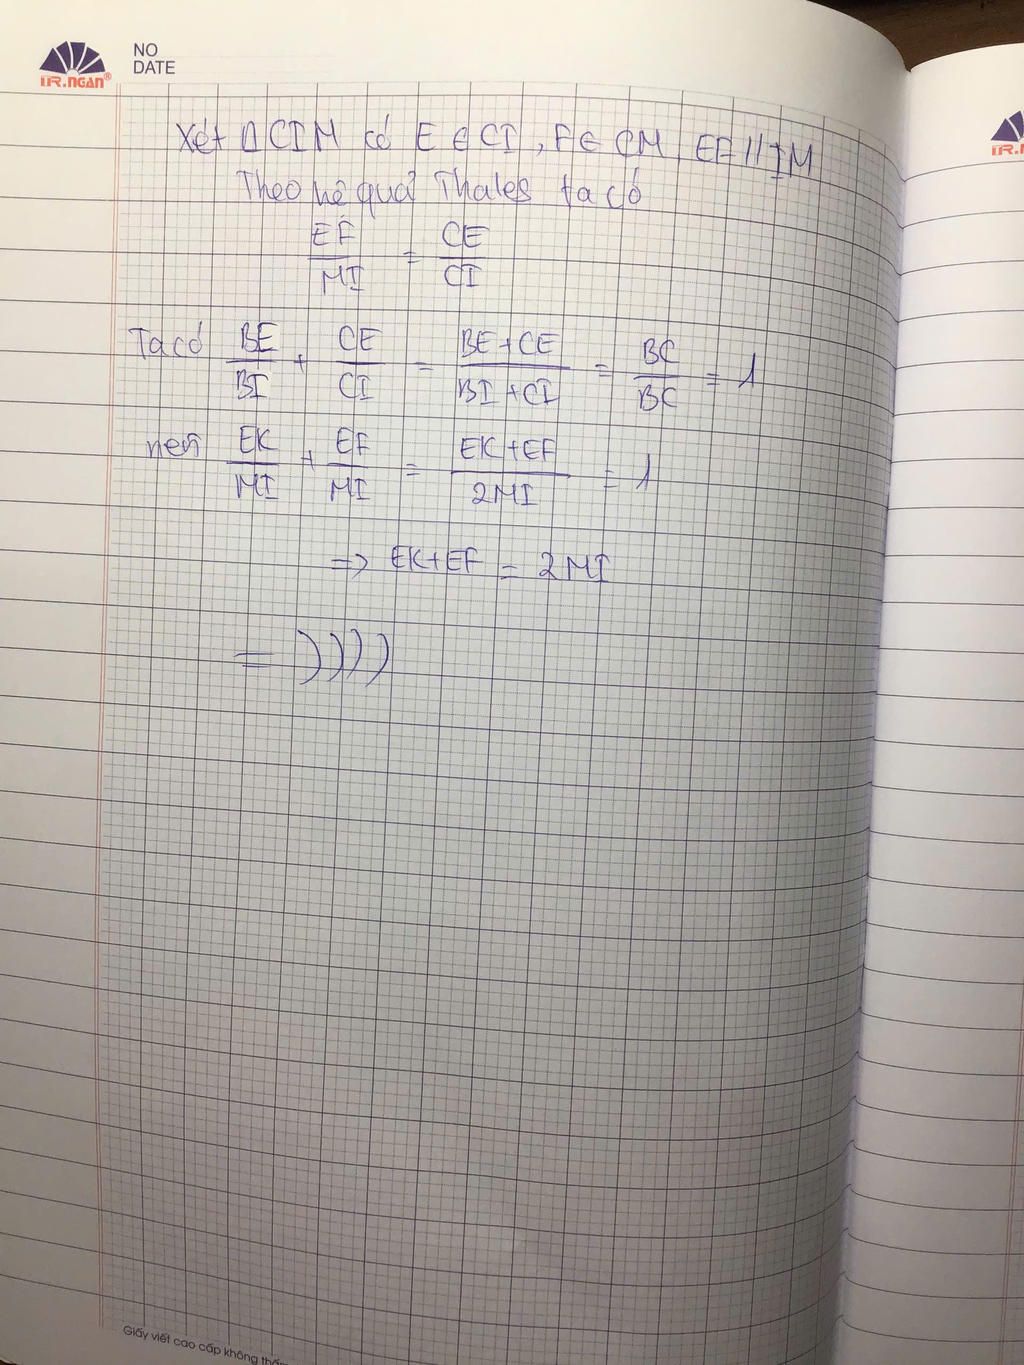 NO
DATE
TR.NGAN®
Xét ΔCIM có E ∈ CI, F ∈ CM, EF // IM
Theo hệ quả Thales ta có
EF/MI = CE/CI
Ta có BE/BI + CE/CI = BE+CE/BI+CI = BC/BC = 1
nên EK/MI + EF/MI = EK+EF/2MI = 1
=> EK+EF = 2MI
=))))
Giấy viết cao cấp không